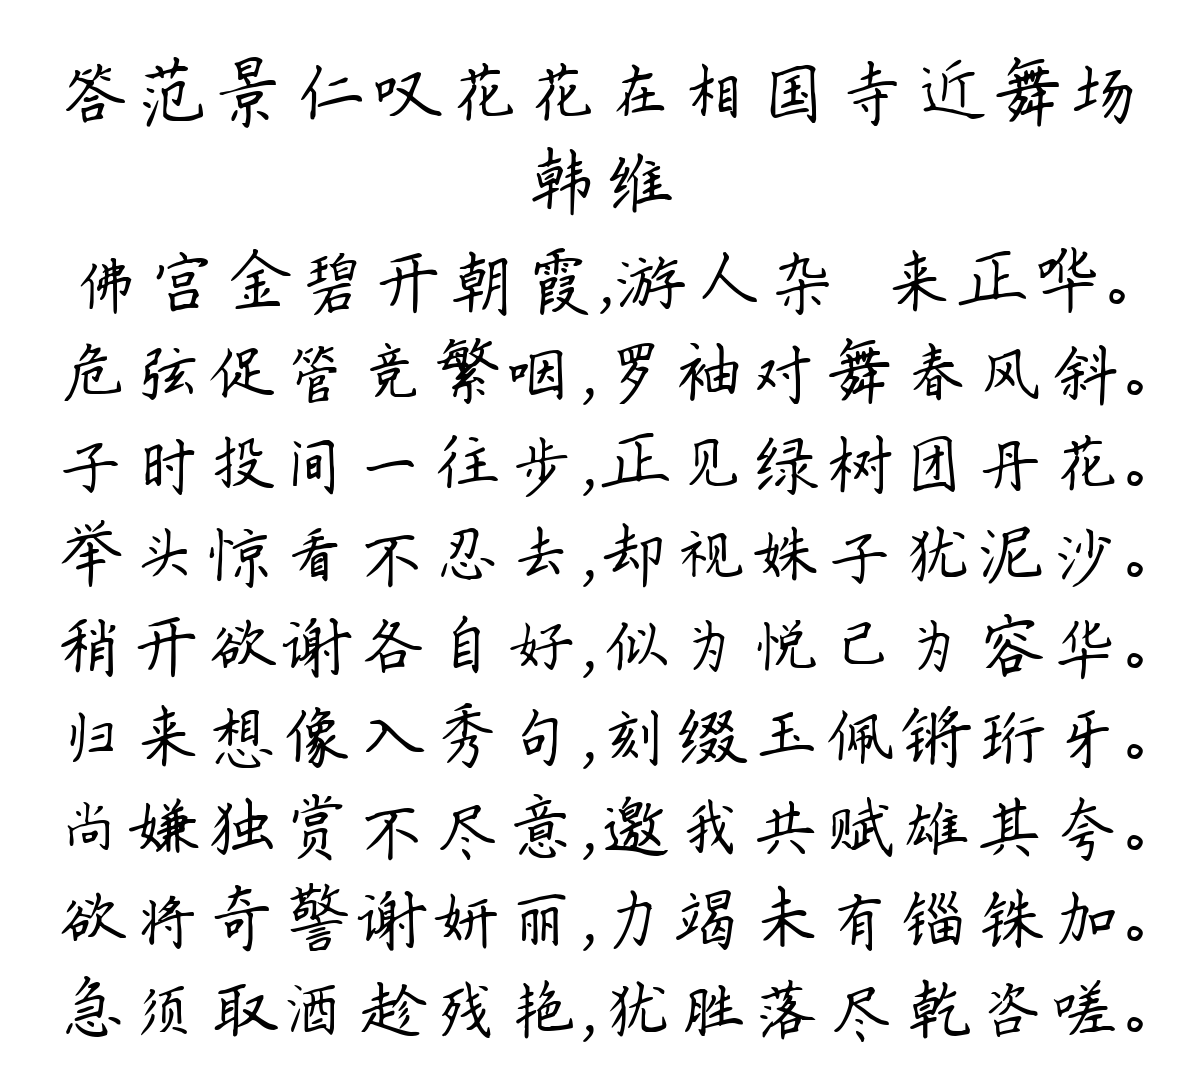 答范景仁叹花花在相国寺近舞场
韩维
佛宫金碧开朝霞,游人杂 来正哗。
危弦促管竞繁咽,罗袖对舞春风斜。
子时投间一往步,正见绿树团丹花。
举头惊看不忍去,却视姝子犹泥沙。
稍开欲谢各自好,似为悦己为容华。
归来想像入秀句,刻缀玉佩锵珩牙。
尚嫌独赏不尽意,邀我共赋雄其夸。
欲将奇警谢妍丽,力竭未有锱铢加。
急须取酒趁残艳,犹胜落尽乾咨嗟。